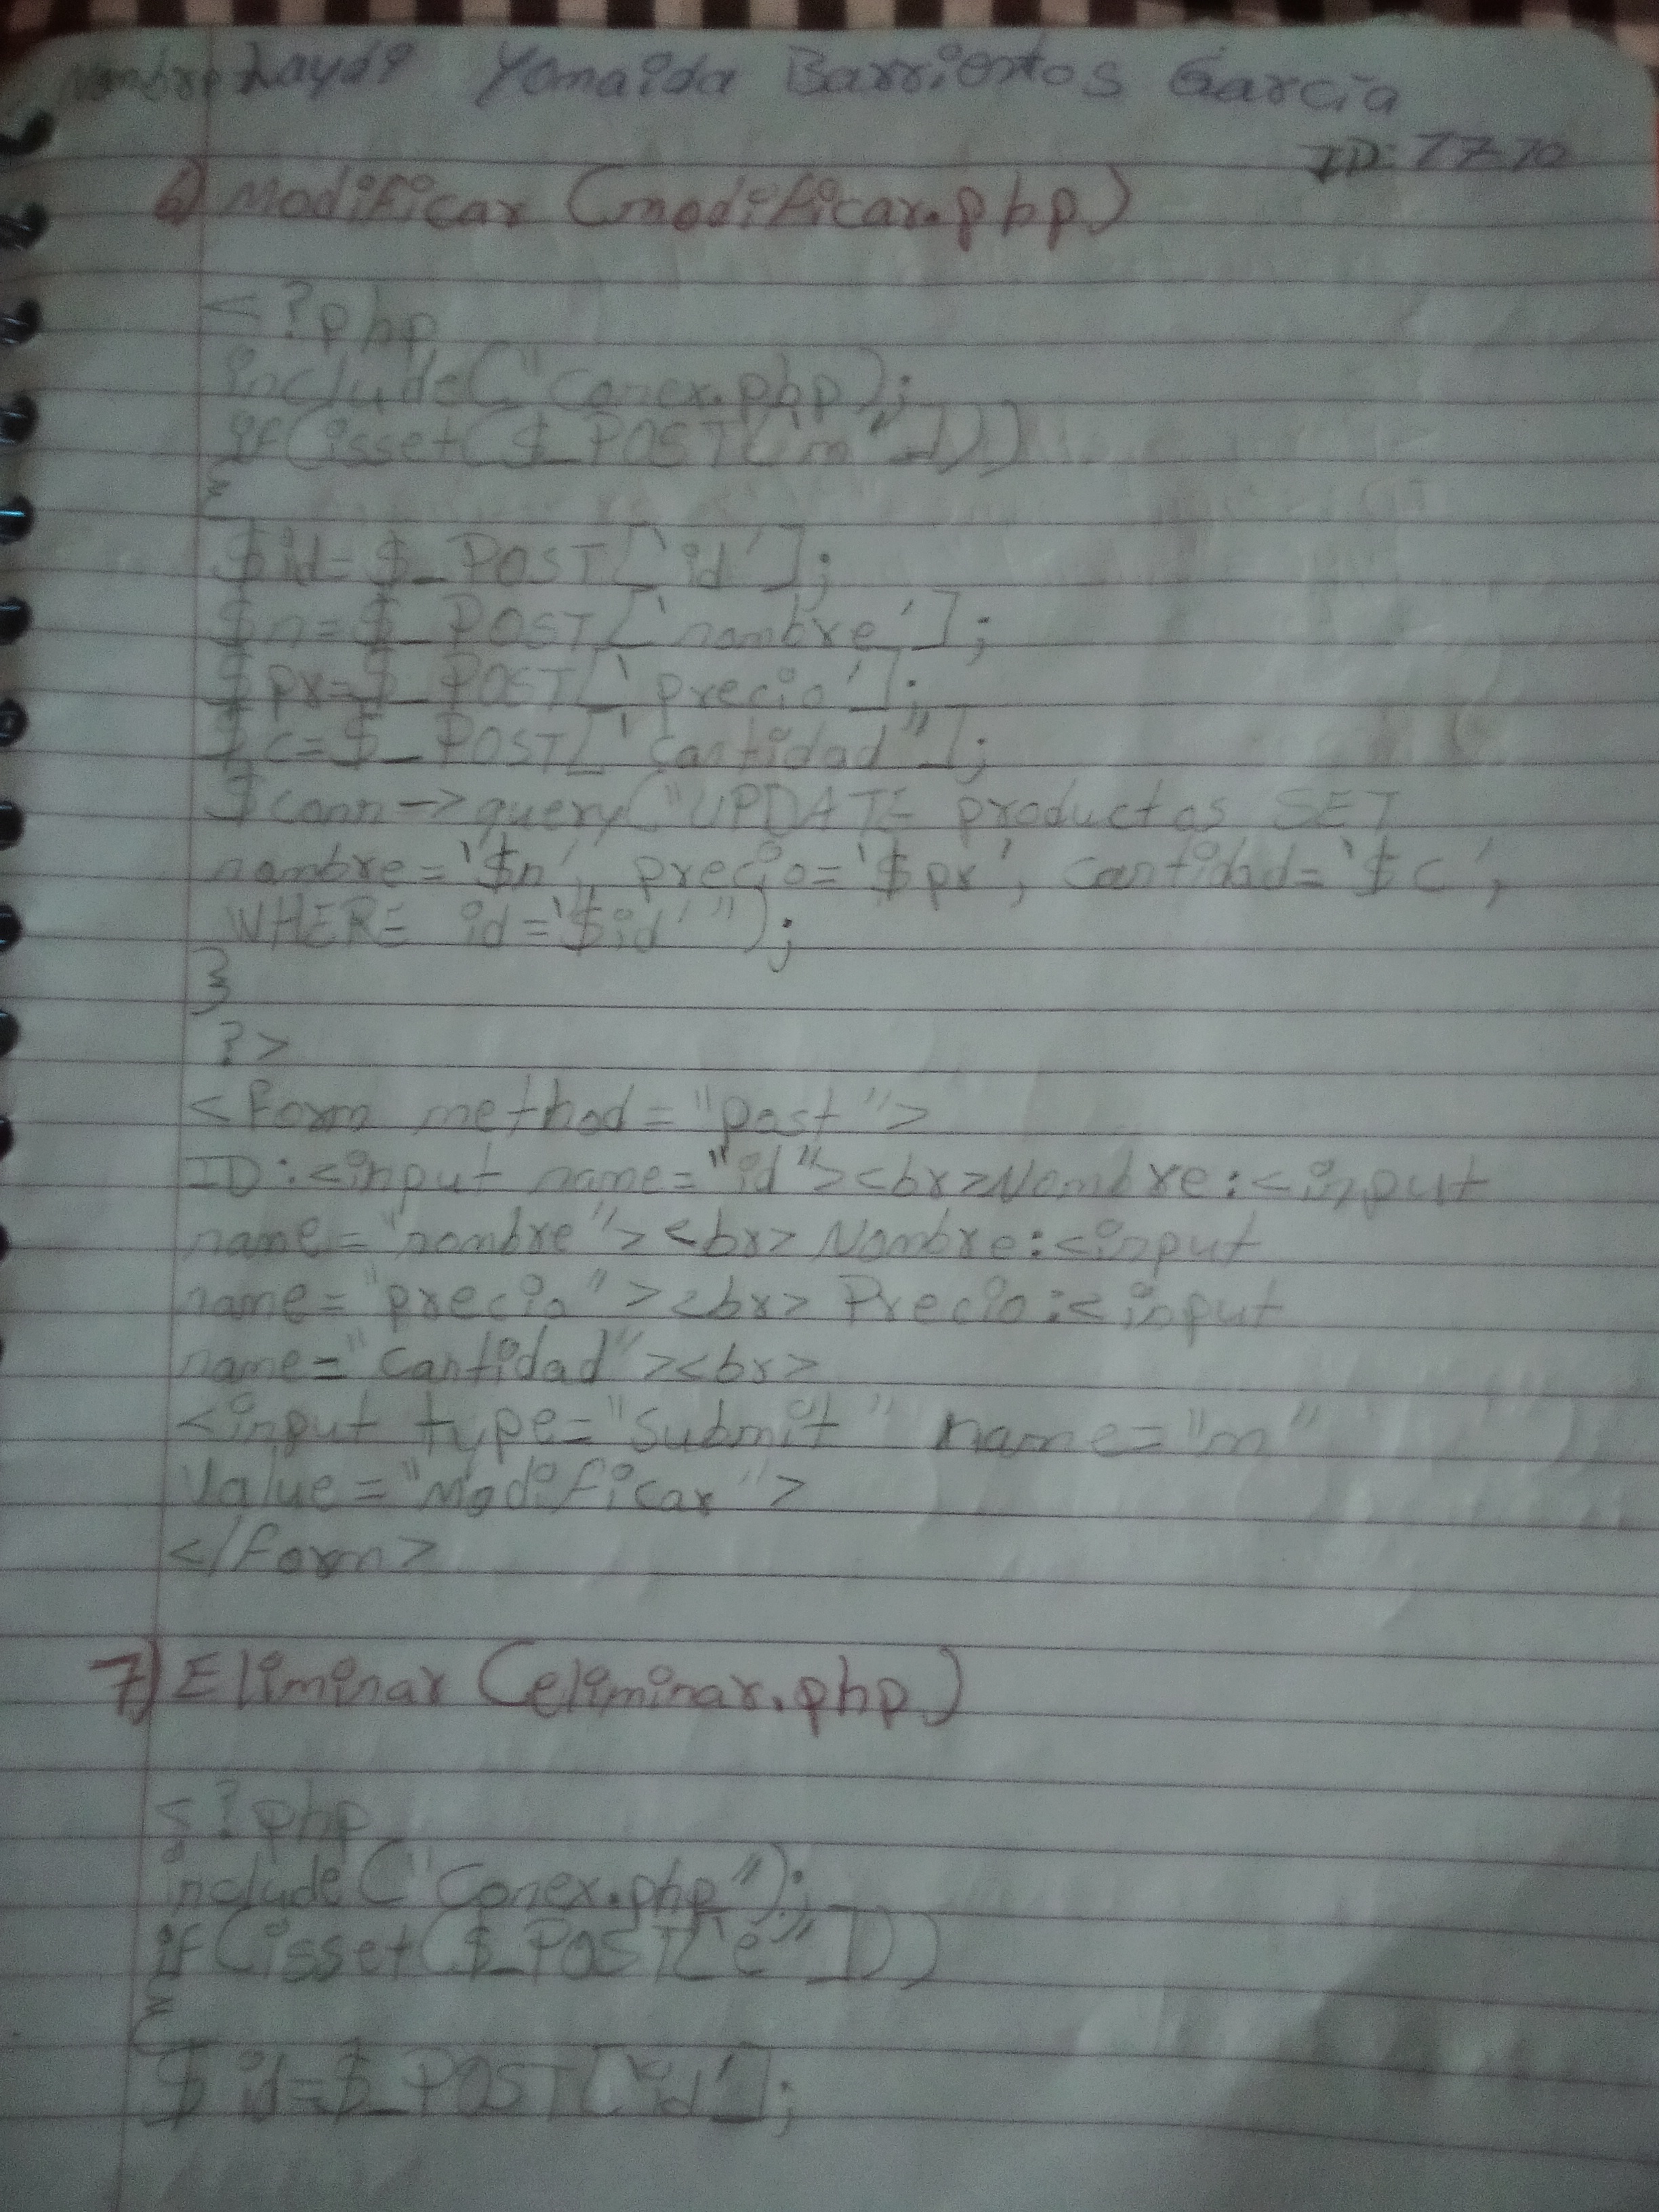 Nombre Laydi Yomaida Barrientos García
ID: 7770
6) Modificar (modificar.php)
<?php
include("conex.php);
if(isset($_POST['m"]))
{
$id=$_POST['id'];
$n=$_POST['nombre'];
$pr=$_POST['precio'];
$c=$_POST['cantidad"];
$conn->query("UPDATE productos SET
nombre='$n', precio='$pr', cantidad='$c',
WHERE id='$id'");
}
?>
<form method="post">
ID:<input name="id"><br>Nombre:<input
name="nombre"><br>Nombre:<input
name="precio"><br>Precio:<input
name="cantidad"><br>
<input type="submit" name="m"
Value="Modificar">
</form>
7) Eliminar (eliminar.php)
<?php
include("Conex.php");
if(isset($_POST['e"]))
{
$id=$_POST['id'];